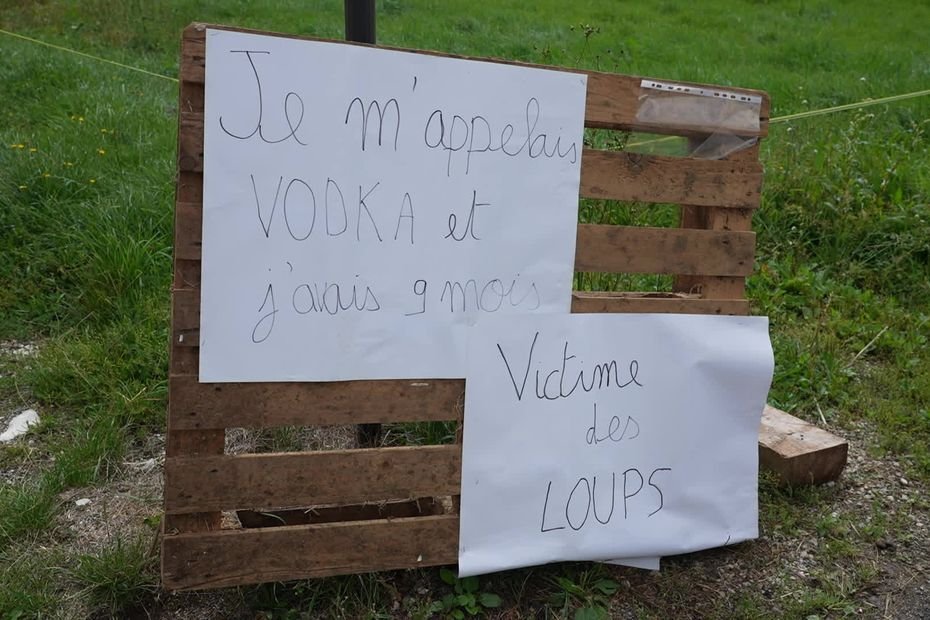 Je m'appelais
VODKA et
j'avais 9 mois
Victime
des
LOUPS